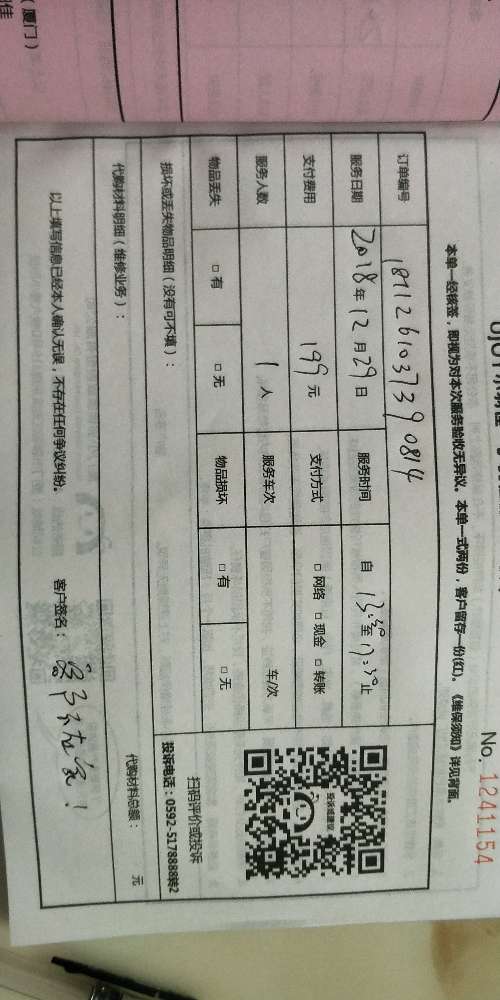 （厦门）
No. 1241154
本单一经核签，即视为对本次服务验收无异议。本单一式两份，客户留存一份(红)。《维保须知》详见背面。
订单编号 181126103739084
服务日期 2018年12月29日 服务时间 自 13:30至17:30止
支付费用 199元 支付方式 □网络 □现金 □转账
服务人数 1人 服务车次 车/次
物品丢失 □有 □无 物品损坏 □有 □无
投诉或建议
扫码评价或投诉
投诉电话：0592-5178888转2
损坏或丢失物品明细（没有可不填）：
代购材料明细（维修业务）：
代购材料总额： 元
以上填写信息已经本人确认无误，不存在任何争议纠纷。 客户签名：